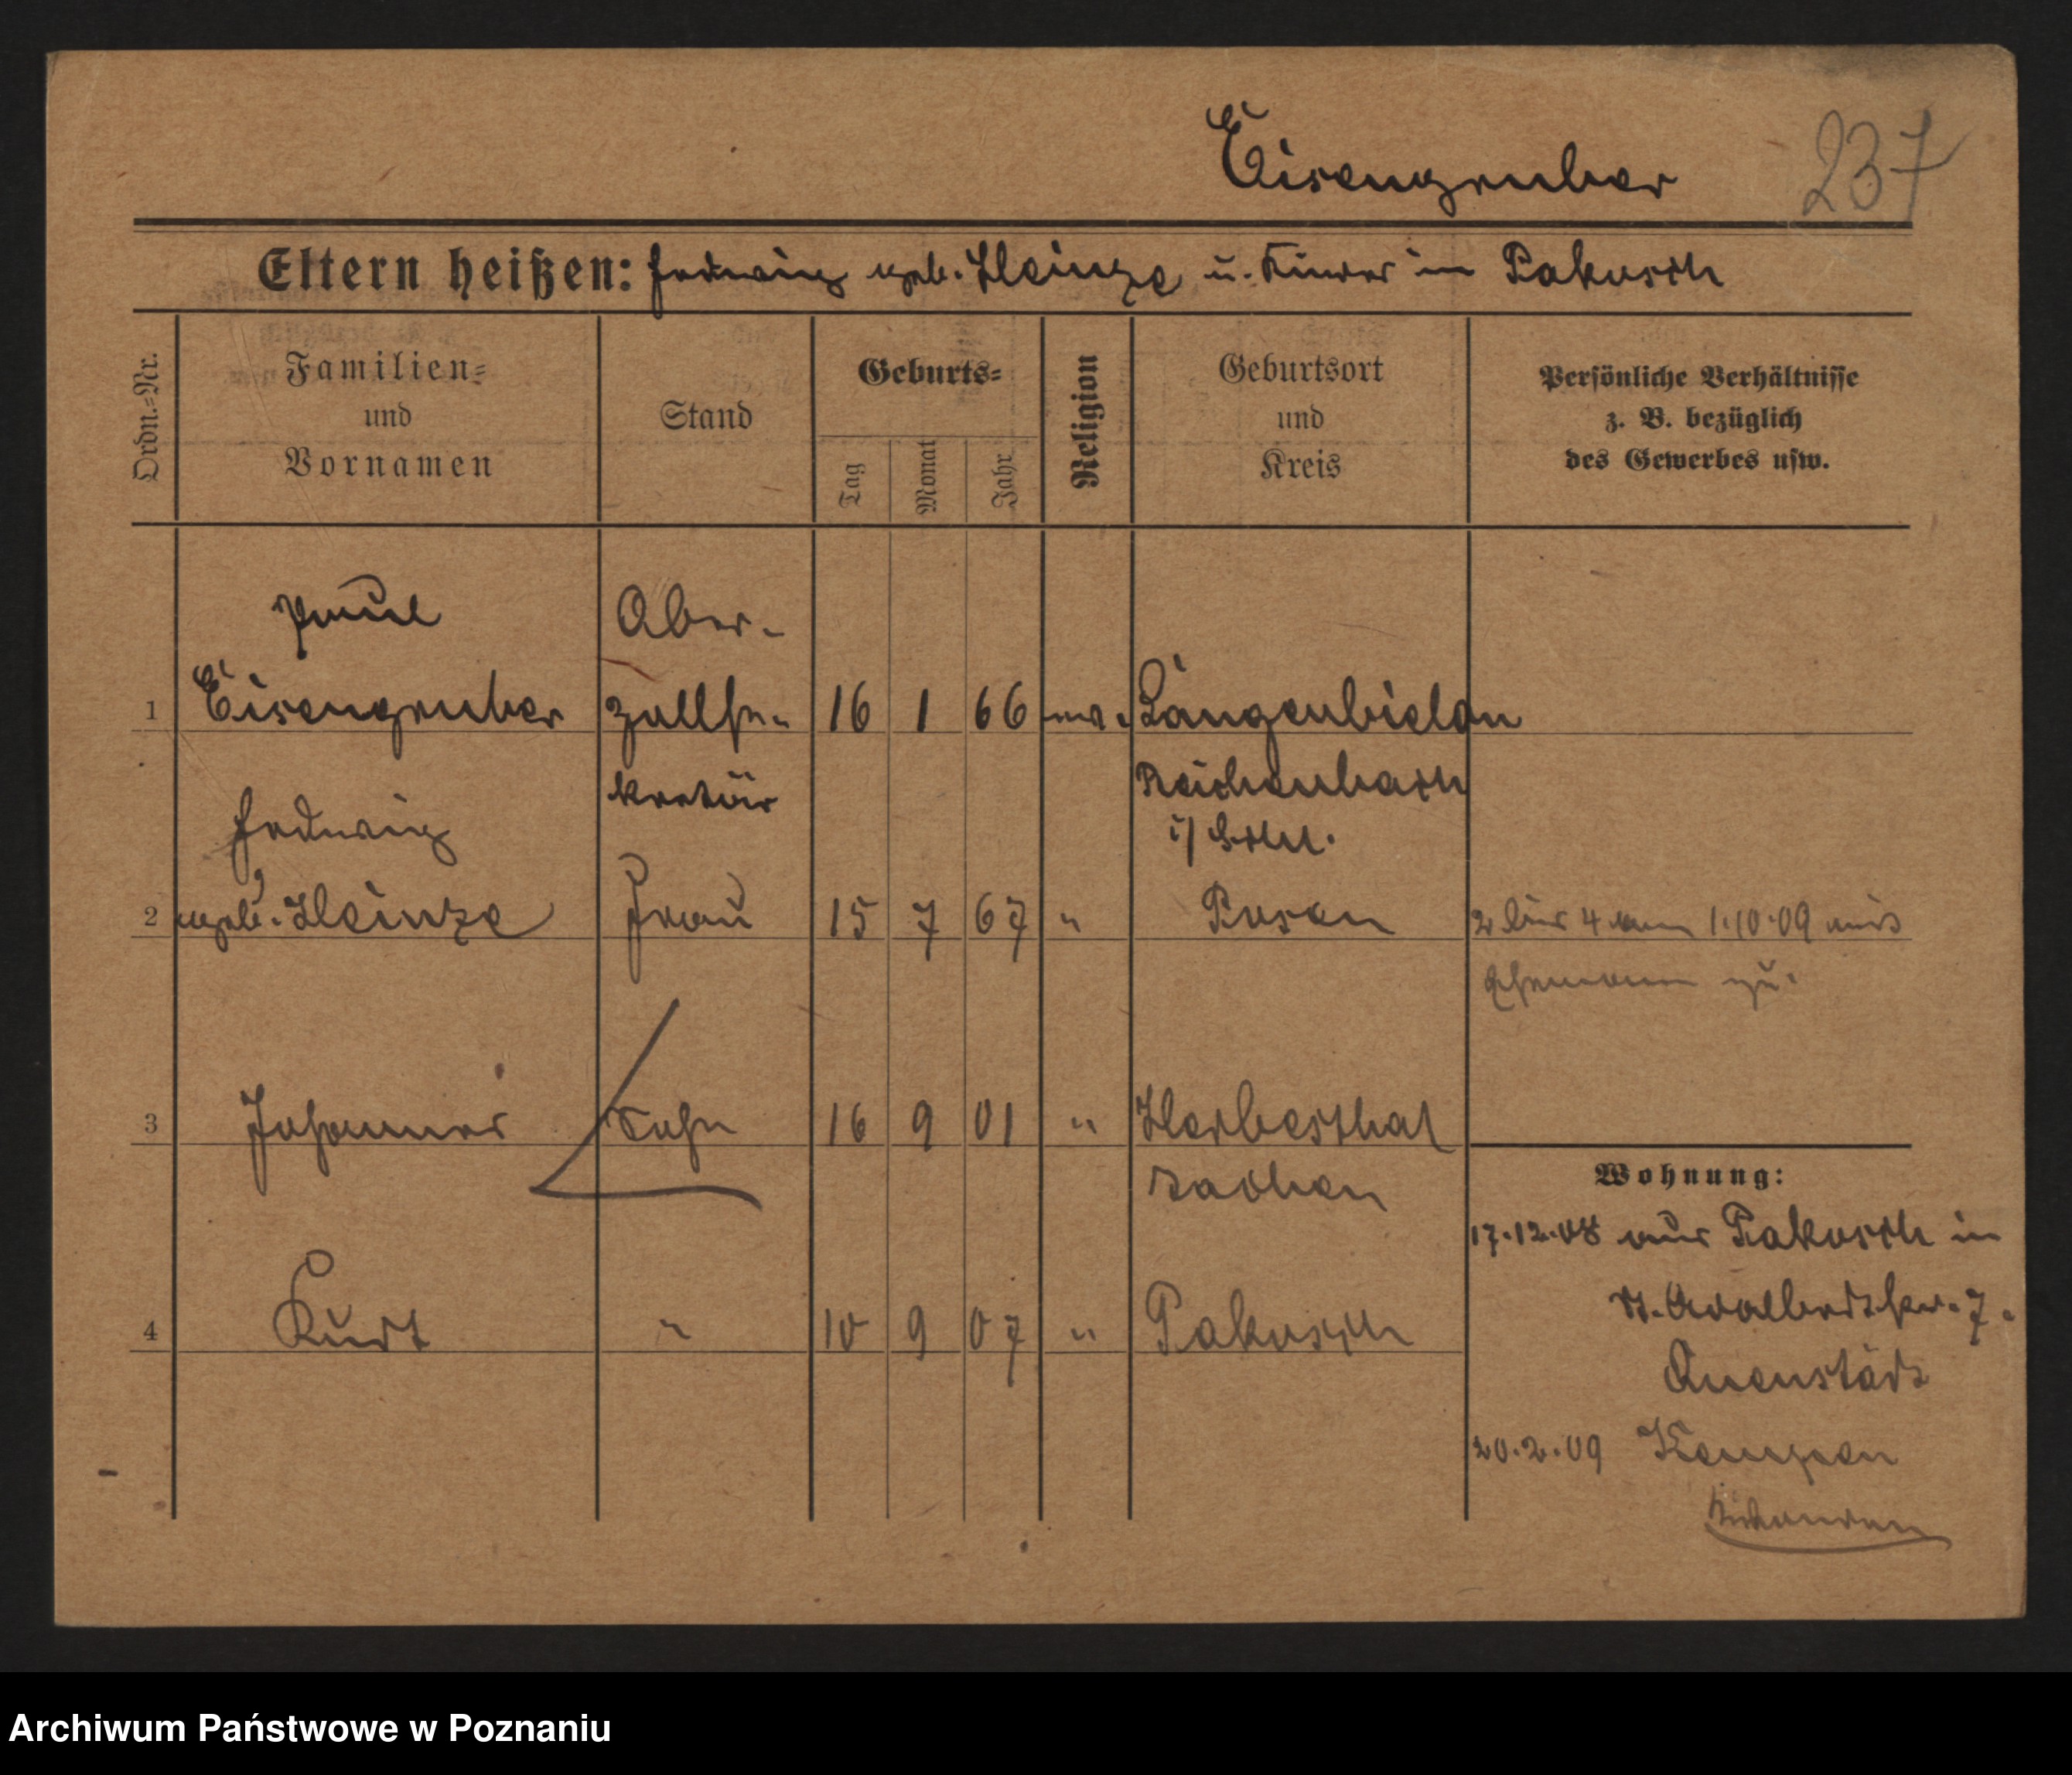 Eisengruber 237
Eltern heißen: Hedwig geb. Heinze u. Kinder in Pakosch
Ordn.-Nr.
Familien-
und
Vornamen
Stand
Geburts-
Tag
Monat
Jahr
Religion
Geburtsort
und
Kreis
Persönliche Verhältnisse
z. B. bezüglich
des Gewerbes usw.
Paul Ober-
1 Eisengruber Zollse- 16 1 66 Langenbielau
kretär Reichenbach
i/Schl.
Hedwig
2 geb. Heinze Frau 15 7 67 " Posen 2 bis 4 am 1.10.09 mit
Ehemann zu.
3 Johannes Sohn 16 9 01 " Herbesthal
Aachen
4 Kurt " 10 9 07 " Pakosch
Wohnung:
17.12.08 aus Pakosch in
St. Adalbertstr. 7.
20.2.09 Kempen
Archiwum Państwowe w Poznaniu